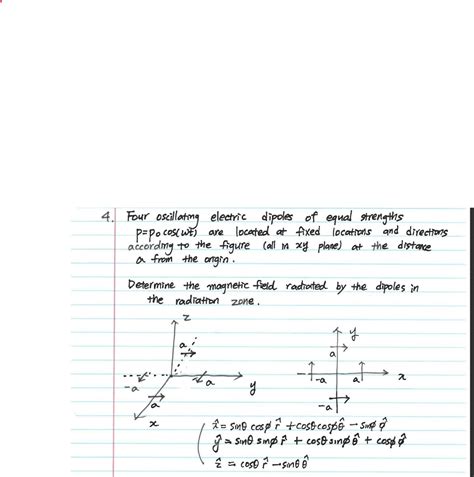 4. Four oscillating electric dipoles of equal strengths
p=p₀cos(ωt) are located at fixed locations and directions
according to the figure (all in xy plane) at the distance
a from the origin.
Determine the magnetic field radiated by the dipoles in
the radiation zone.
z
y
a
a
-a
a
y
x
-a
a
x
a
-a
x̂ = sinθ cosϕ r̂ + cosθcosϕ θ̂ - sinϕ ϕ̂
ŷ = sinθ sinϕ r̂ + cosθ sinϕ θ̂ + cosϕ ϕ̂
ẑ = cosθ r̂ - sinθ θ̂